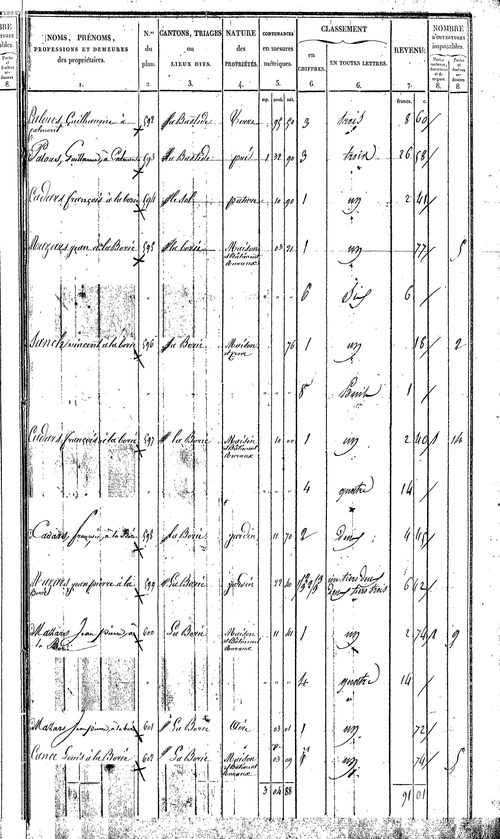 NOMS, PRÉNOMS,
PROFESSIONS ET DEMEURES
des propriétaires.
1.
N.os
du
plan.
2.
CANTONS, TRIAGES
ou
LIEUX DITS.
3.
NATURE
des
PROPRIÉTÉS.
4.
CONTENANCES
en mesures
métriques.
5.
CLASSEMENT
en
CHIFFRES.
6.
EN TOUTES LETTRES.
6.
REVENU.
7.
NOMBRE
D'OUVERTURES
imposables.
8.
8.
francs. c.
Palous, Guillaume à 592 La Bastide 95 50 3 trois 8 60
Palous, Guillaume, à 593 La Bastide prés 1 32 90 3 trois 26 58
Cadars françois à la borie 594 le sol pature 10 90 1 un 2 41
Mazars jean à la Borie 595 la borie Maison 03 21 1 un 77 5
et Bâtiment
ruraux
6 Six 6
vincent à la borie 596 La Borie Maison 76 1 un 18 2
8 huit 1
Cadars françois à la borie 597 la Borie Maison 10 00 1 un 2 40
et Bâtiment
ruraux
4 quatre 14
Cadars, françois, à la Borie 598 La Borie jardin 11 70 2 deux 4 45
Mazars jean pierre à la 599 La Borie jardin 22 40 un tiers deux 6 42
Borie deux tiers trois
Mazars Jean pierre, à 600 La Borie Maison 11 41 1 un 2 74 9
la Borie et Bâtiment
ruraux
4 quatre 14
Mazars jean pierre, à la borie 601 La Borie 03 01 1 un 72
Louis à la Borie 602 La Borie Maison 03 09 1 un 74 5
et Bâtiment
ruraux
3 04 88 91 01